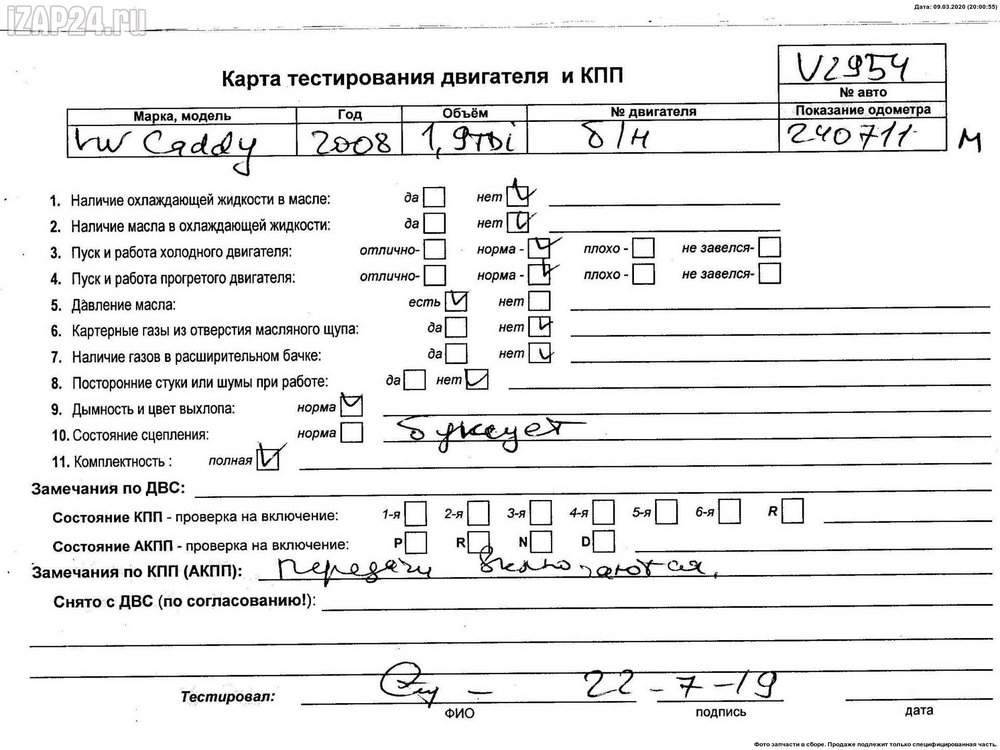 iZAP24.ru
Дата: 09.03.2020 (20:00:55)
Карта тестирования двигателя и КПП
V2954
№ авто
Марка, модель Год Объём № двигателя Показание одометра
VW Caddy 2008 1,9TDi б/н 240711 м
1. Наличие охлаждающей жидкости в масле: да нет
2. Наличие масла в охлаждающей жидкости: да нет
3. Пуск и работа холодного двигателя: отлично- норма - плохо - не завелся-
4. Пуск и работа прогретого двигателя: отлично- норма - плохо - не завелся-
5. Давление масла: есть нет
6. Картерные газы из отверстия масляного щупа: да нет
7. Наличие газов в расширительном бачке: да нет
8. Посторонние стуки или шумы при работе: да нет
9. Дымность и цвет выхлопа: норма
10. Состояние сцепления: норма буксует
11. Комплектность : полная
Замечания по ДВС:
Состояние КПП - проверка на включение: 1-я 2-я 3-я 4-я 5-я 6-я R
Состояние АКПП - проверка на включение: P R N D
Замечания по КПП (АКПП): передачи включаются.
Снято с ДВС (по согласованию!):
Тестировал: 22-7-19
ФИО подпись дата
Фото запчасти в сборе. Продаже подлежит только специфицированная часть.